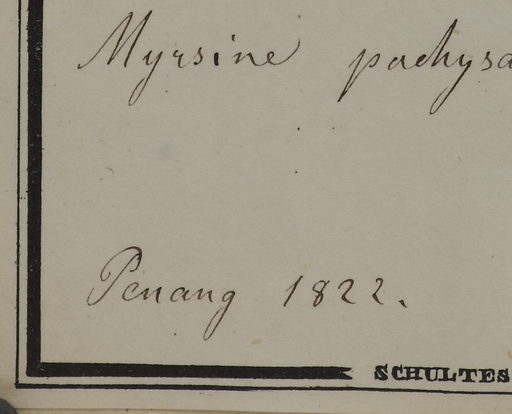 Myrsine pachysa
Penang 1822.
SCHULTES